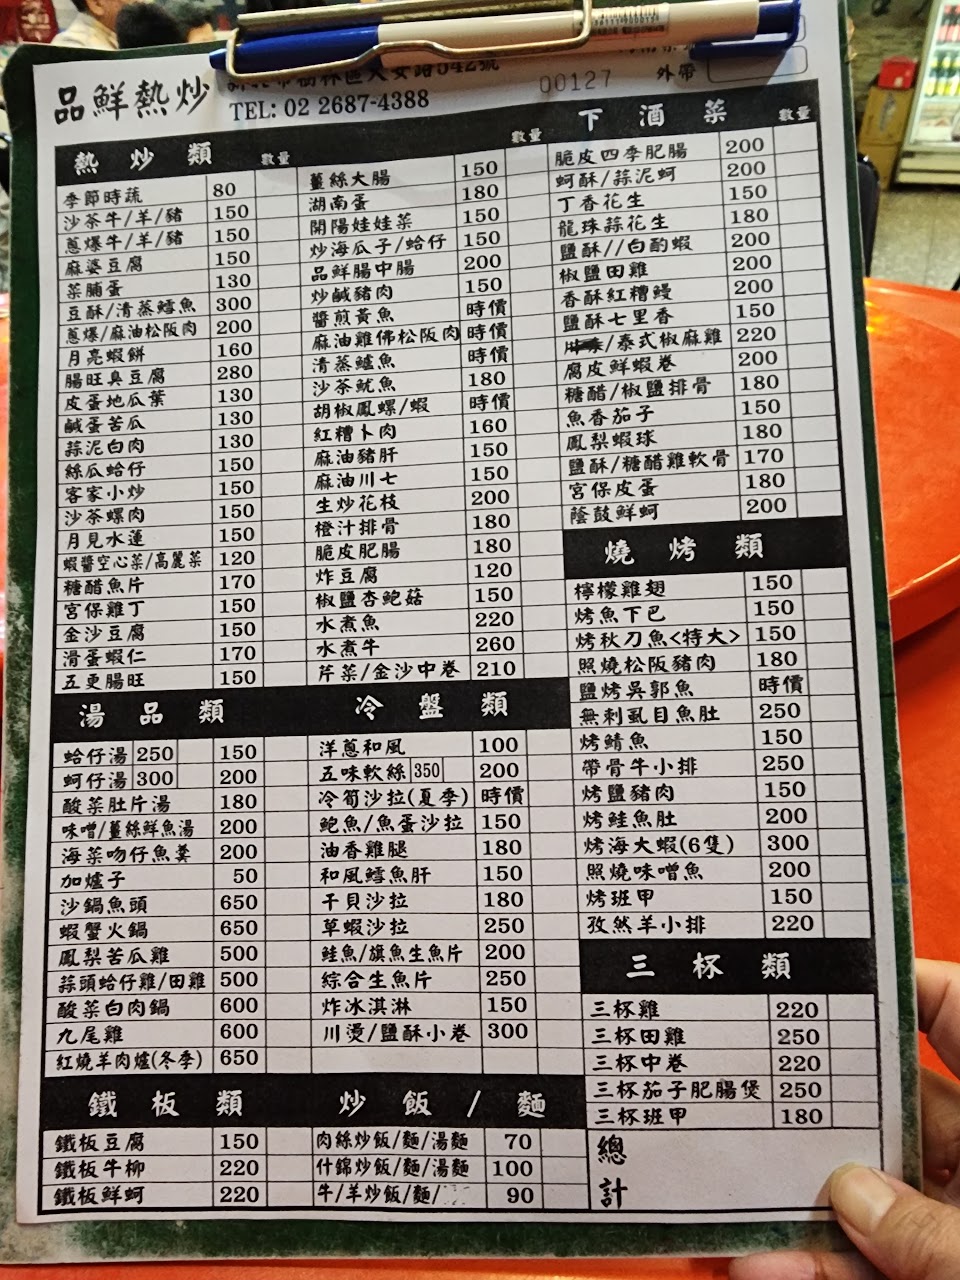 品鮮熱炒
樹林區大安路542號
TEL: 02 2687-4388
00127
外帶
熱炒類 數量
季節時蔬 80
沙茶牛/羊/豬 150
蔥爆牛/羊/豬 150
麻婆豆腐 150
菜脯蛋 130
豆酥/清蒸鱈魚 300
蔥爆/麻油松阪肉 200
月亮蝦餅 160
腸旺臭豆腐 280
皮蛋地瓜葉 130
鹹蛋苦瓜 130
蒜泥白肉 130
絲瓜蛤仔 150
客家小炒 150
沙茶螺肉 150
月見水蓮 150
蝦醬空心菜/高麗菜 120
糖醋魚片 170
宮保雞丁 150
金沙豆腐 150
滑蛋蝦仁 170
五更腸旺 150
數量
薑絲大腸 150
湖南蛋 180
開陽娃娃菜 150
炒海瓜子/蛤仔 150
品鮮腸中腸 200
炒鹹豬肉 150
醬煎黃魚 時價
麻油雞佛松阪肉 時價
清蒸鱸魚 時價
沙茶魷魚 180
胡椒鳳螺/蝦 時價
紅糟卜肉 160
麻油豬肝 150
麻油川七 150
生炒花枝 200
橙汁排骨 180
脆皮肥腸 180
炸豆腐 120
椒鹽杏鮑菇 150
水煮魚 220
水煮牛 260
芹菜/金沙中卷 210
下酒菜 數量
脆皮四季肥腸 200
蚵酥/蒜泥蚵 200
丁香花生 150
龍珠蒜花生 180
鹽酥//白酌蝦 200
椒鹽田雞 200
香酥紅糟鰻 200
鹽酥七里香 150
/泰式椒麻雞 220
腐皮鮮蝦卷 200
糖醋/椒鹽排骨 180
魚香茄子 150
鳳梨蝦球 180
鹽酥/糖醋雞軟骨 170
宮保皮蛋 180
蔭鼓鮮蚵 200
燒烤類
檸檬雞翅 150
烤魚下巴 150
烤秋刀魚<特大> 150
照燒松阪豬肉 180
鹽烤吳郭魚 時價
無刺虱目魚肚 250
烤鯖魚 150
帶骨牛小排 250
烤鹽豬肉 150
烤鮭魚肚 200
烤海大蝦(6隻) 300
照燒味噌魚 200
烤班甲 150
孜然羊小排 220
三杯類
三杯雞 220
三杯田雞 250
三杯中卷 220
三杯茄子肥腸煲 250
三杯班甲 180
總計
湯品類
蛤仔湯 250 150
蚵仔湯 300 200
酸菜肚片湯 180
味噌/薑絲鮮魚湯 200
海菜吻仔魚羹 200
加爐子 50
沙鍋魚頭 650
蝦蟹火鍋 650
鳳梨苦瓜雞 500
蒜頭蛤仔雞/田雞 500
酸菜白肉鍋 600
九尾雞 600
紅燒羊肉爐(冬季) 650
冷盤類
洋蔥和風 100
五味軟絲 350 200
冷筍沙拉(夏季) 時價
鮑魚/魚蛋沙拉 150
油香雞腿 180
和風鱈魚肝 150
干貝沙拉 180
草蝦沙拉 250
鮭魚/旗魚生魚片 200
綜合生魚片 250
炸冰淇淋 150
川燙/鹽酥小卷 300
鐵板類
鐵板豆腐 150
鐵板牛柳 220
鐵板鮮蚵 220
炒飯/麵
肉絲炒飯/麵/湯麵 70
什錦炒飯/麵/湯麵 100
牛/羊炒飯/麵/ 90